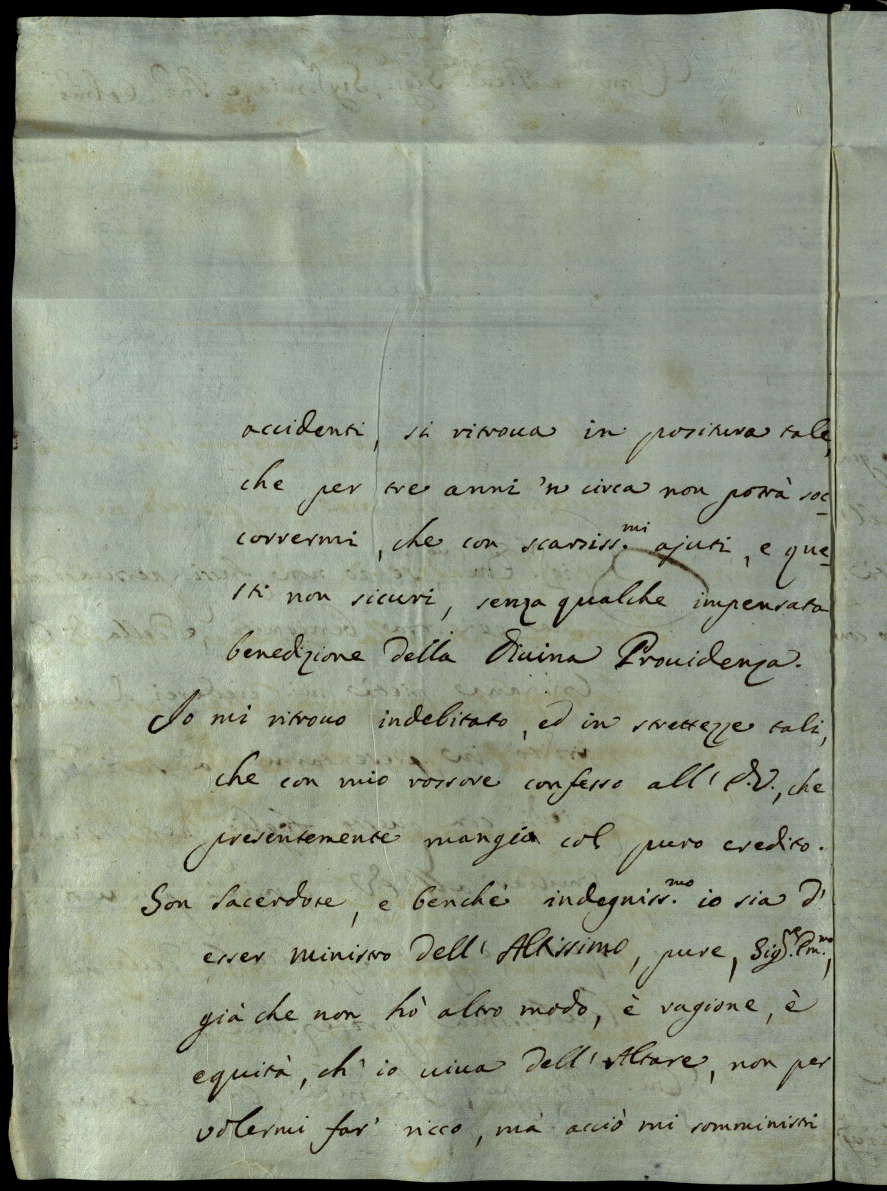 accidenti, si ritroua in positura tale,
che per tre anni 'n circa non potrà soc=
corrermi, che con scarsiss.mi ajuti, e que=
sti non sicuri, senza qualche impensata
benedizione della Diuina Prouidenza.
Io mi ritrouo indebitato, ed in strettezze tali,
che con mio rossore confesso all' E.V., che
presentemente mangio col puro credito.
Son Sacerdote, e benchè indegniss.mo io sia d'
esser ministro dell' Altissimo, pure, Sig.re Em.mo,
già che non hò altro modo, è ragione, è
equità, ch' io uiua dell' Altare, non per
volermi far' ricco, mà acciò mi somministri